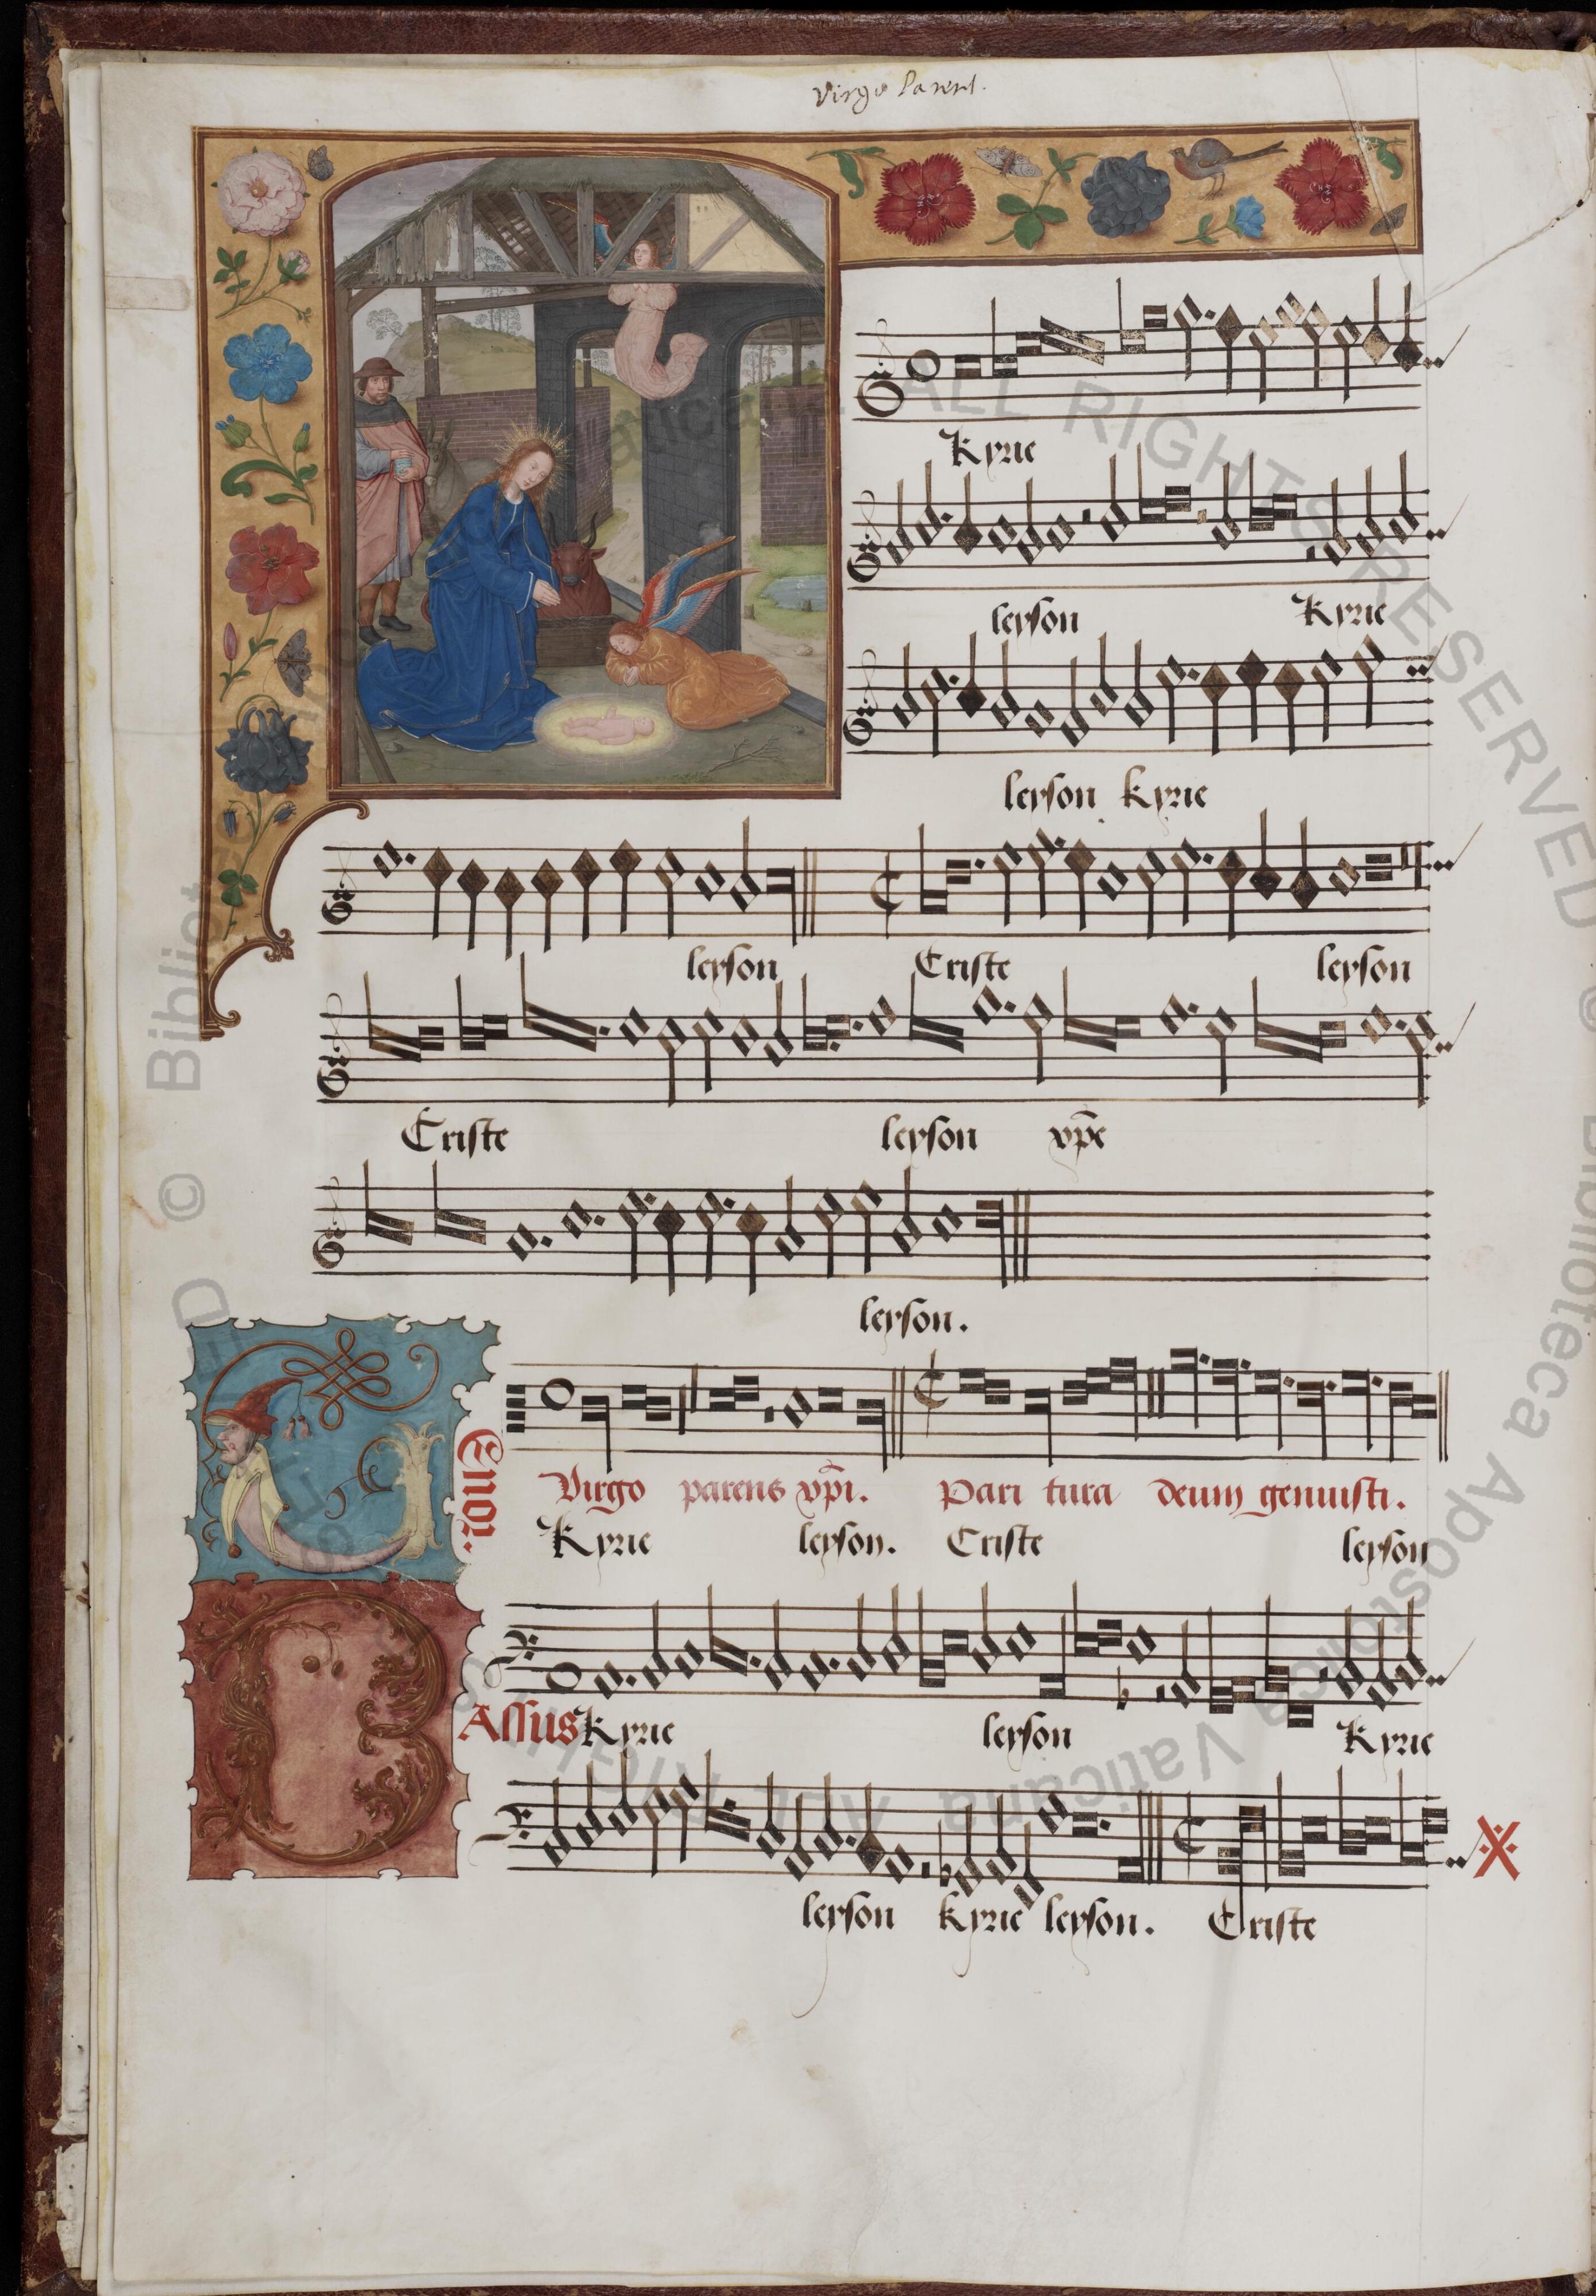 Virgo Parens.
Kyrie
leyson Kyrie
leyson kyrie
leyson Criste leyson
Criste leyson xp̄e
leyson.
Tenor.
Virgo parens xp̄i. Pari tura deum genuisti.
Kyrie leyson. Criste leyson
BAssus Kyrie leyson Kyrie
leyson kyrie leyson. Criste
© Biblioteca Apostolica Vaticana ALL RIGHTS RESERVED